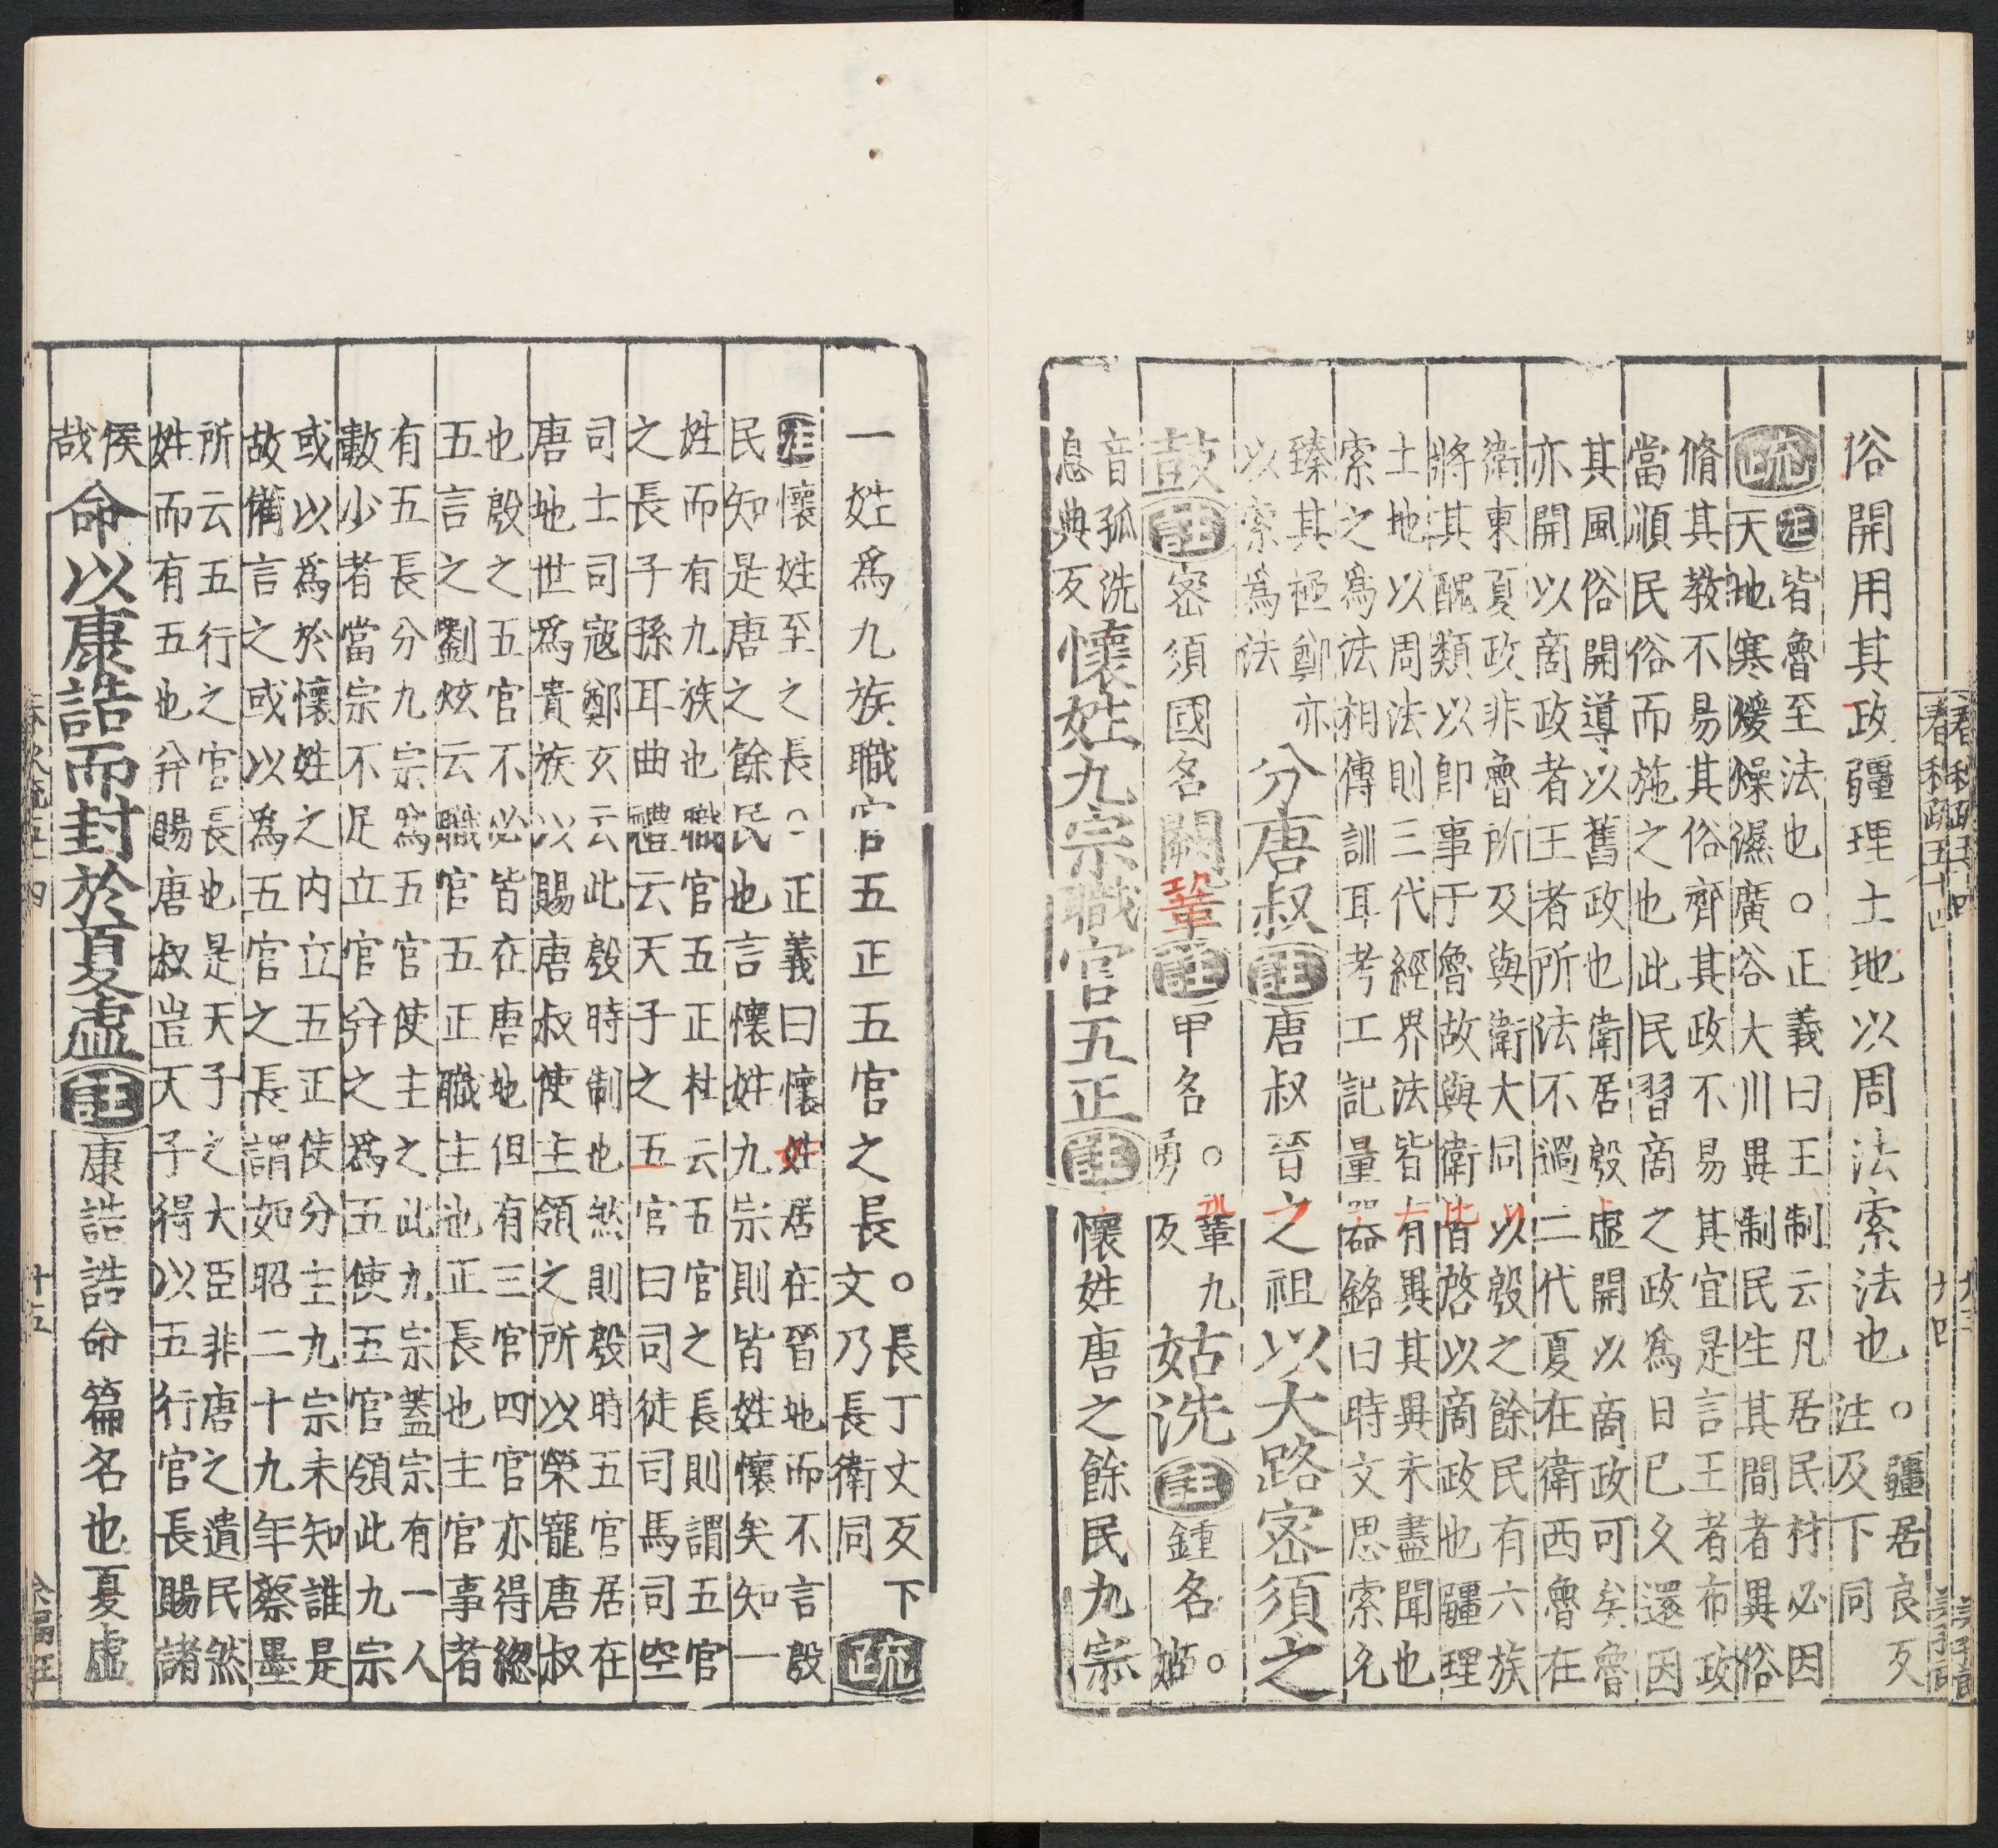 俗開用其政疆理土地以周法索法也○疆居良反
注及下同
疏注皆魯至法也○正義曰王制云凡居民材必因
天地寒煖燥濕廣谷大川異制民生其間者異俗
脩其教不易其俗齊其政不易其宜是言王者布政
當順民俗而施之也此民習商之政爲日已久還因
其風俗開導以舊政也衛居殷虛開以商政可矣魯
亦開以商政者王者所法不過二代夏在衛西魯在
衛東夏政非魯所及與衛大同以殷之餘民有六族
將其醜類以即事于魯故與衛皆啓以商政也疆理
土地以周法則三代經界法皆有異其異未盡聞也
索之爲法相傳訓耳考工記量器銘曰時文思索允
臻其極鄭亦
以索爲法
分唐叔註唐叔晉之祖以大路密須之
鼓註密須國名闕鞏註甲名○鞏九
勇反
姑洗註鍾名○姑
音孤洗
息典反
懷姓九宗職官五正註懷姓唐之餘民九宗
一姓爲九族職官五正五官之長○長丁丈反下
文乃長衛同
疏
注懷姓至之長○正義曰懷姓居在晉地而不言殷
民知是唐之餘民也言懷姓九宗則皆姓懷矣知一
姓而有九族也職官五正杜云五官之長則謂五官
之長子孫耳曲禮云天子之五官曰司徒司馬司空
司士司寇鄭玄云此殷時制也然則殷時五官居在
唐地世爲貴族以賜唐叔使主領之所以榮寵唐叔
也殷之五官不必皆在唐地但有三官四官亦得緫
五言之劉炫云職官五正職主也正長也主官事者
有五長分九宗爲五官使主之此九宗蓋宗有一人
數少者當宗不足立官幷之爲五使五官領此九宗
或以爲於懷姓之内立五正使分主九宗未知誰是
故備言之或以爲五官之長謂如昭二十九年蔡墨
所云五行之官長也是天子之大臣非唐之遺民然
姓而有五也幷賜唐叔豈天子得以五行官長賜諸
侯
哉
命以康誥而封於夏虛註康誥誥命篇名也夏虛